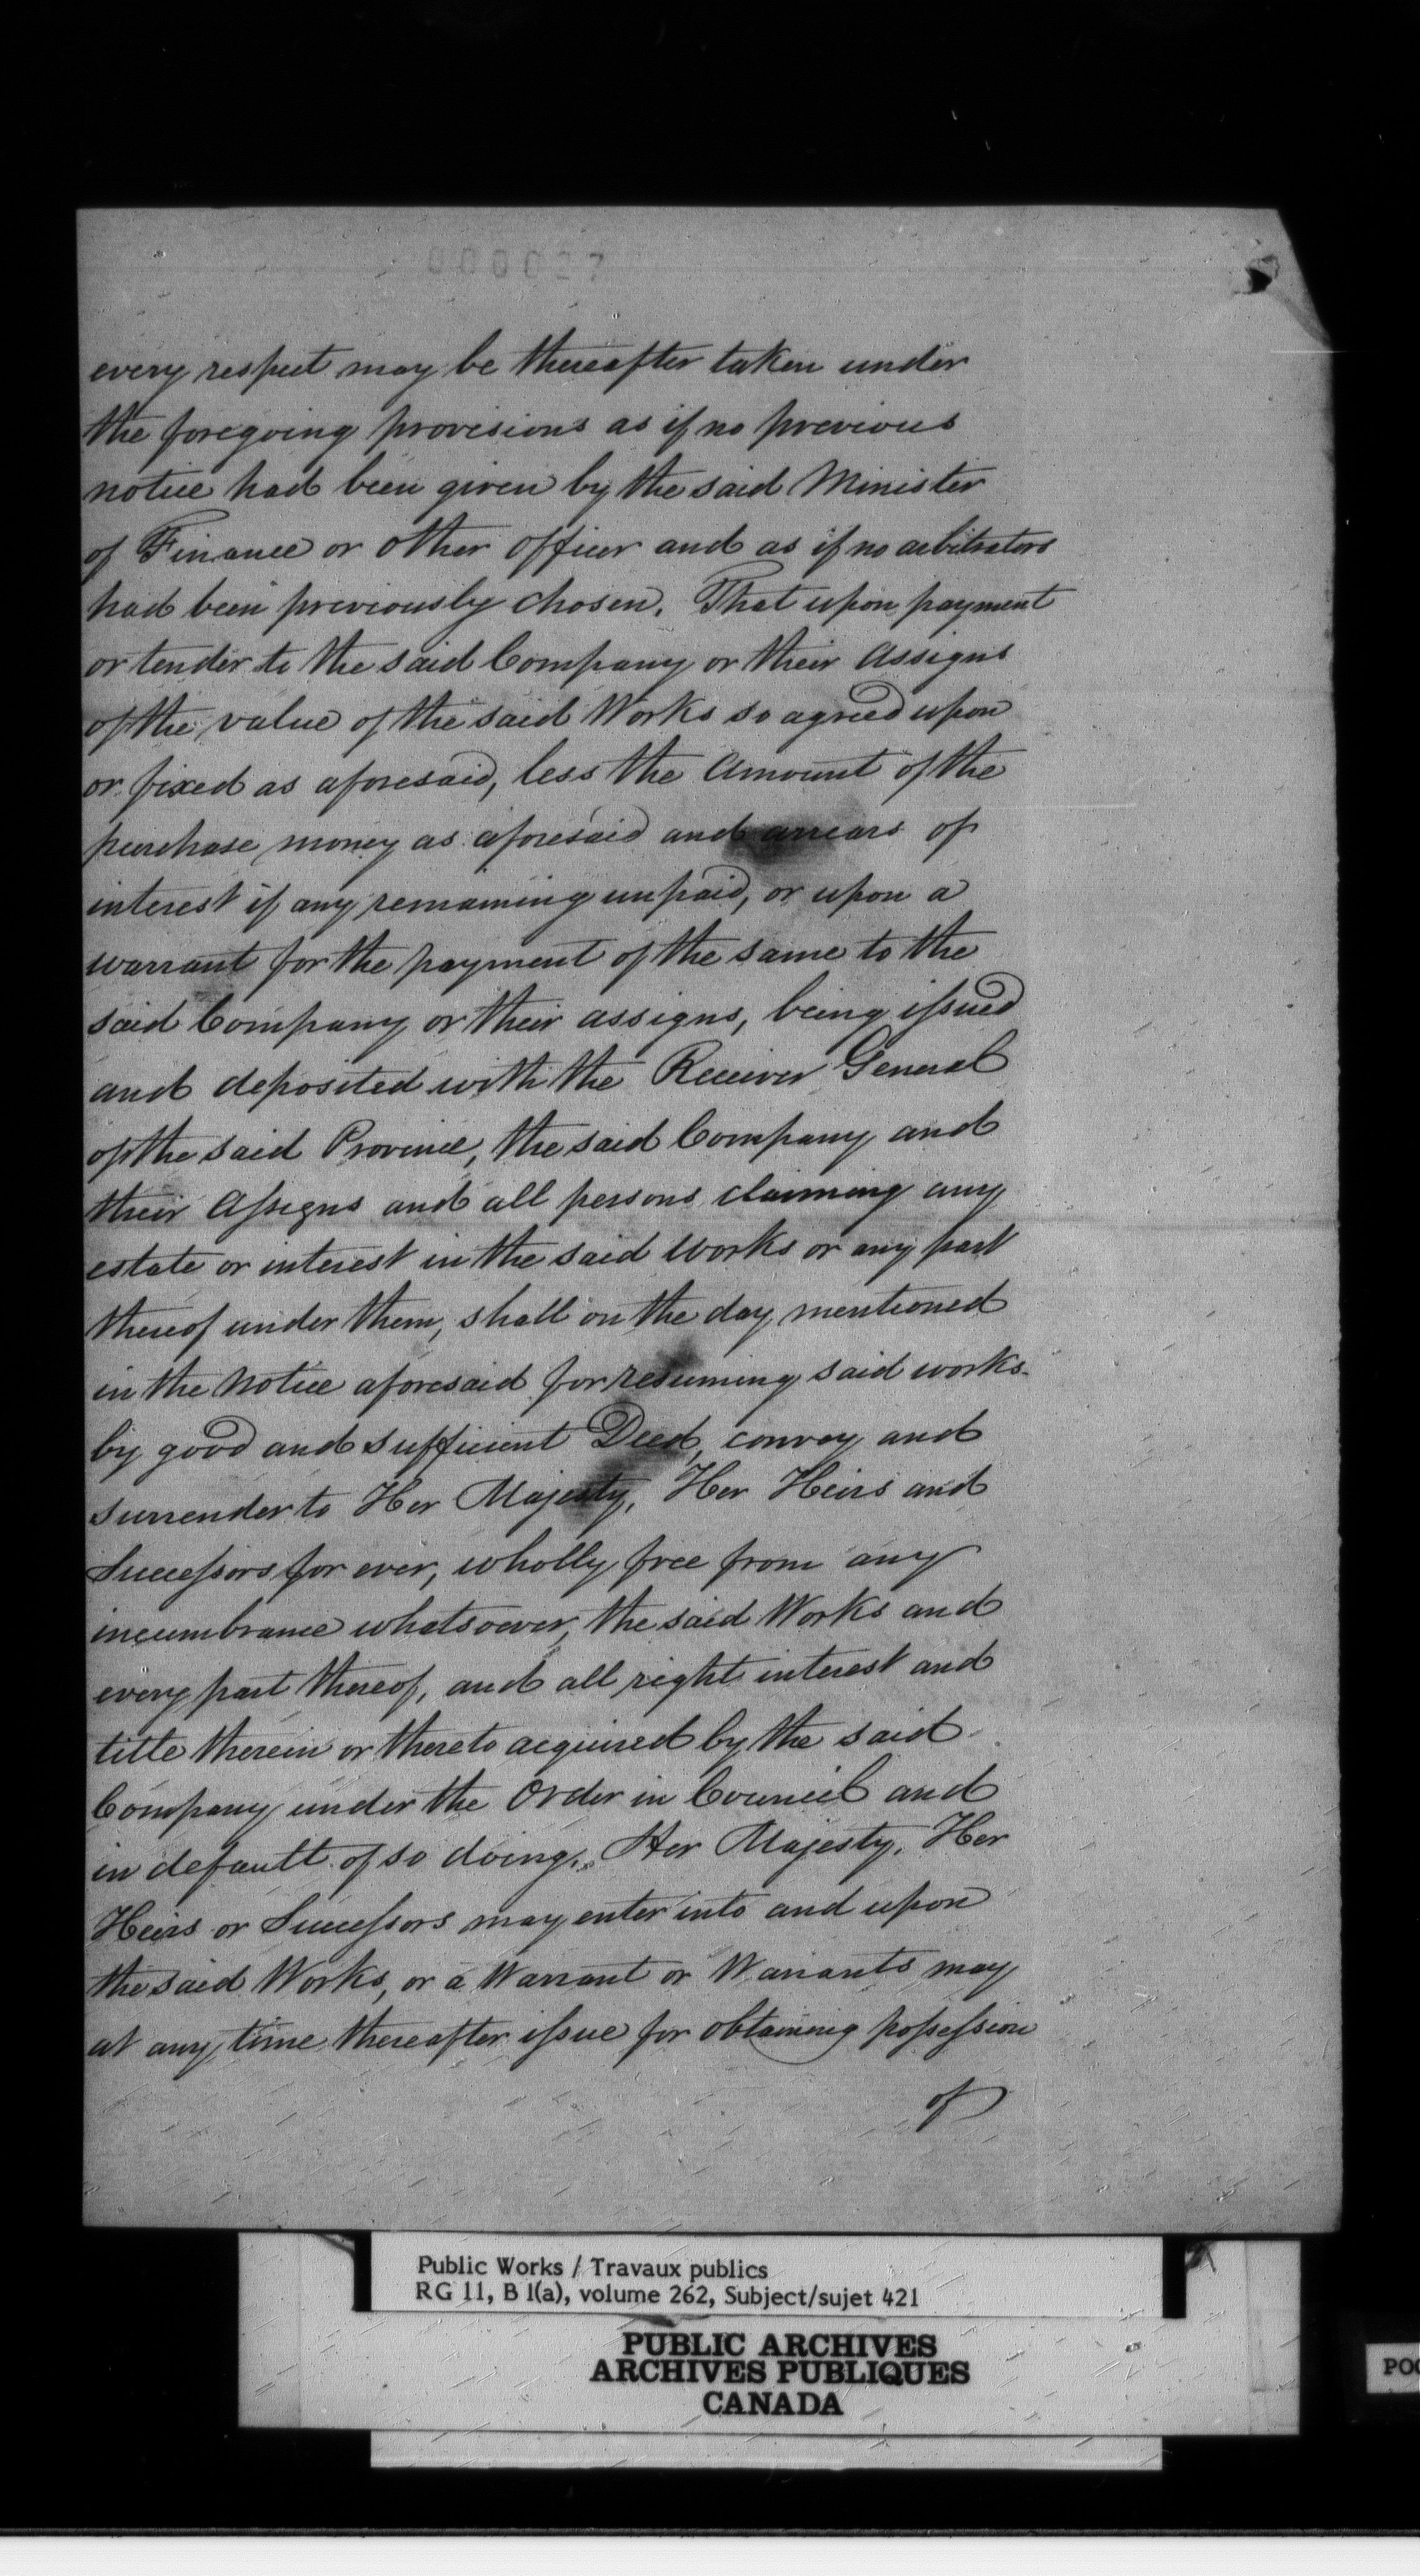 000027
every respect may be thereafter taken under
the foregoing provisions as if no previous
notice had been given by the said Minister
of Finance or other officer and as if no arbitrators
had been previously chosen. That upon payment
or tender to the said Company or their Assigns
of the value of the said Works so agreed upon
or fixed as aforesaid, less the Amount of the
purchase money as aforesaid and arrears of
interest if any remaining unpaid, or upon a
warrant for the payment of the same to the
said Company or their assigns, being issued
and deposited with the Receiver General
of the said Province, the said Company and
their Assigns and all persons claiming any
estate or interest in the said Works or any part
thereof under them, shall on the day mentioned
in the Notice aforesaid for resuming said works
by good and sufficient Deed, convey and
surrender to Her Majesty, Her Heirs and
Successors for ever, wholly free from any
incumbrance whatsoever, the said Works and
every part thereof, and all right interest and
title therein or thereto acquired by the said
Company under the Order in Council and
in default of so doing, Her Majesty, Her
Heirs or Successors may enter into and upon
the said Works, or a Warrant or Warrants may
at any time thereafter issue for obtaining possession
of
Public Works / Travaux publics
RG 11, B 1(a), volume 262, Subject/sujet 421
PUBLIC ARCHIVES
ARCHIVES PUBLIQUES
CANADA